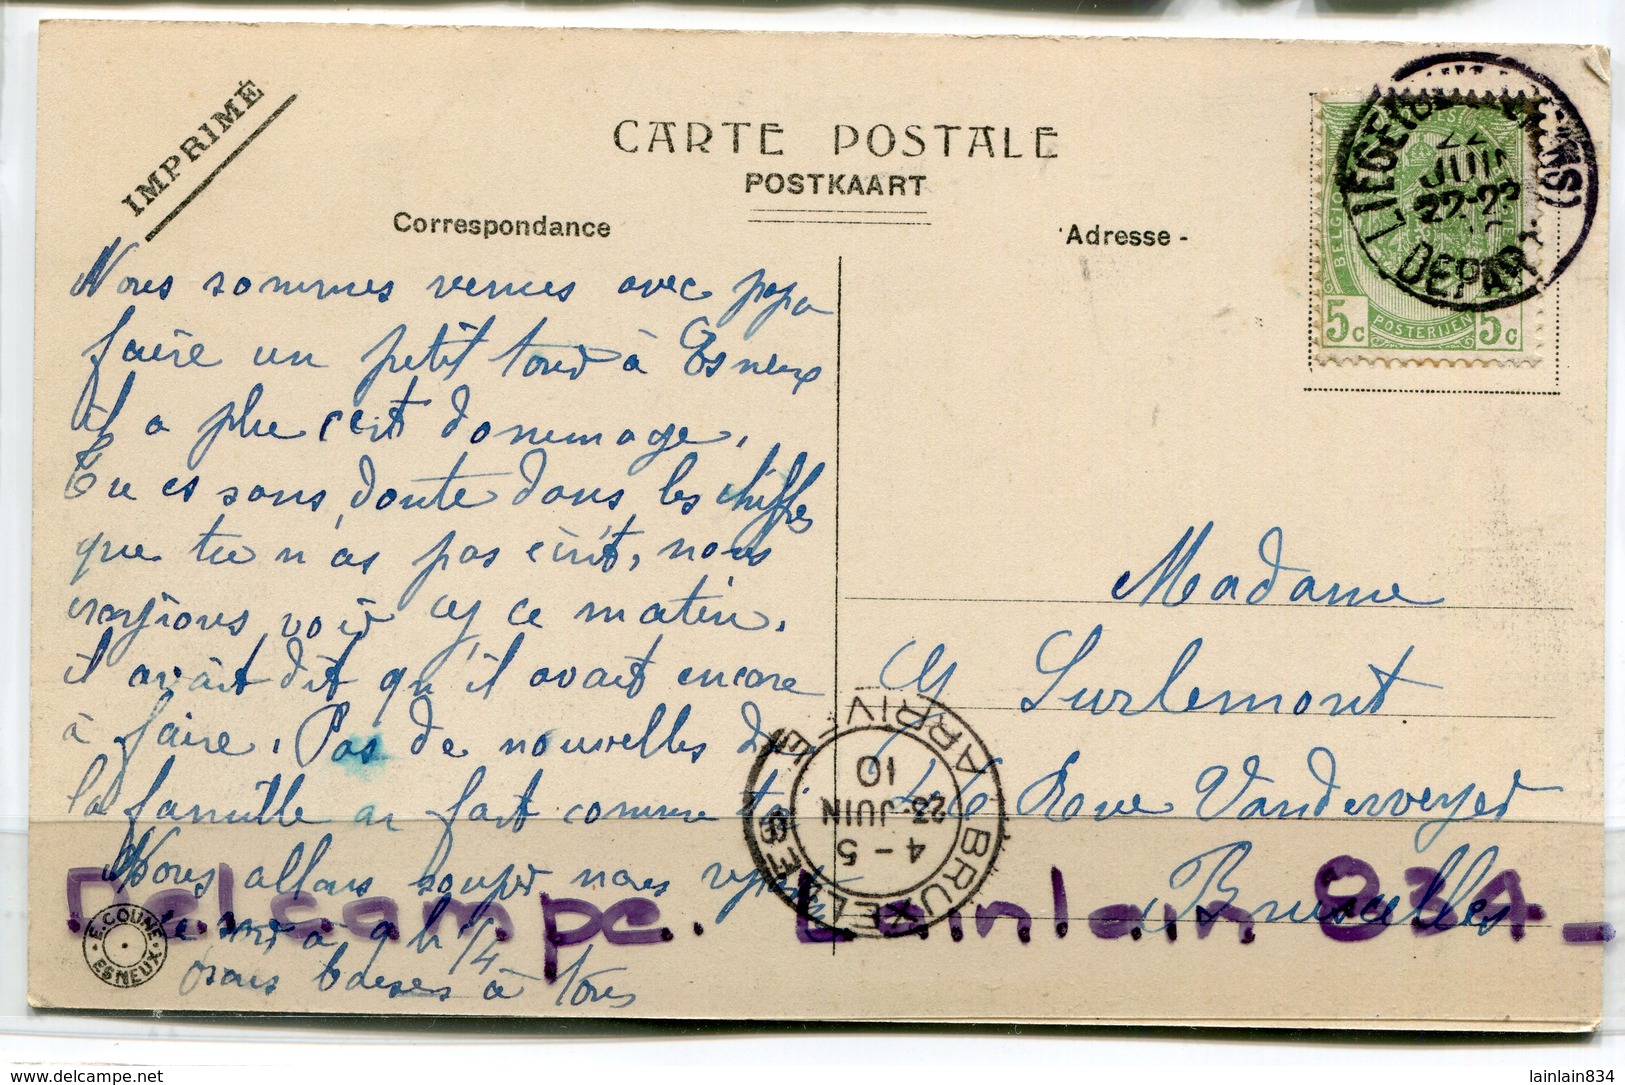 IMPRIMÉ
CARTE POSTALE
POSTKAART
Correspondance
Adresse -
LIEGE
JUIN
22-23
DEPART
BELGIQUE
POSTERIJEN
5c 5c
Nous sommes venues avec papa
faire un petit tour à Esneux
il a plu c'est dommage.
Tu es sans doute dans les chiffres
que tu n'as pas écrit, nous
croyions voir Cy ce matin,
il avait dit qu'il avait encore
à faire. Pas de nouvelles de
la famille on fait comme toi
Nous allons souper nous
à 9 h 1/4
bons baises à tous
Madame
Cy Surlemont
46 Rue Vanderweyer
Bruxelles
BRUXELLES
ARRIV
4-5
23 JUIN
10
E. COUNE
ESNEUX
Delcampe. Lainlain 834_
www.delcampe.net
lainlain834